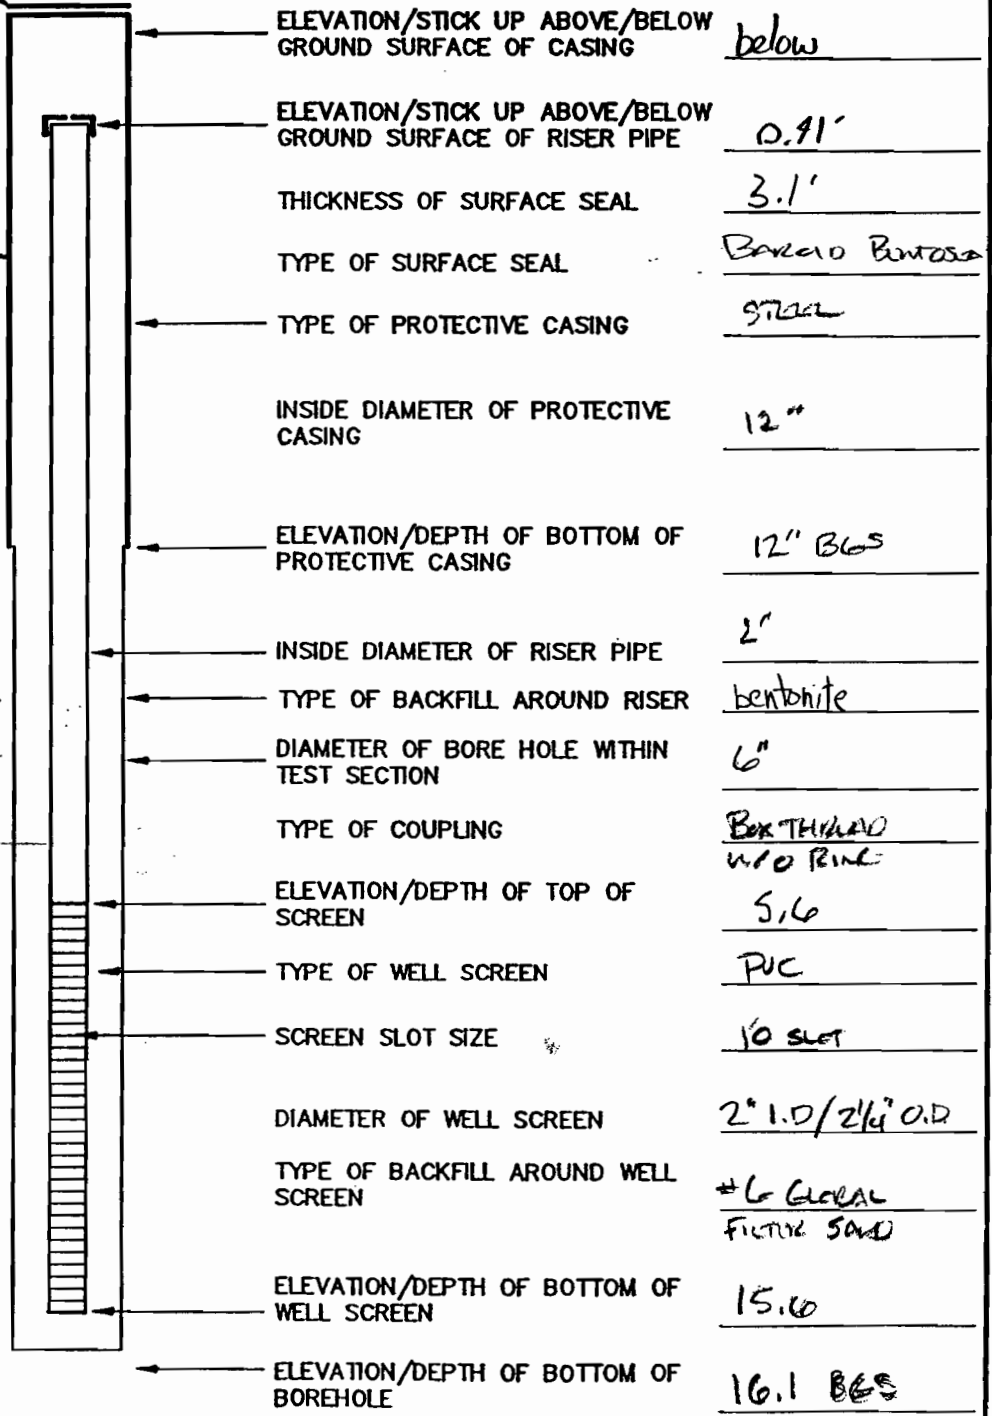 ELEVATION/STICK UP ABOVE/BELOW
GROUND SURFACE OF CASING below
ELEVATION/STICK UP ABOVE/BELOW
GROUND SURFACE OF RISER PIPE
THICKNESS OF SURFACE SEAL 3.1'
TYPE OF SURFACE SEAL
TYPE OF PROTECTIVE CASING STEEL
INSIDE DIAMETER OF PROTECTIVE
CASING 12"
ELEVATION/DEPTH OF BOTTOM OF
PROTECTIVE CASING 12" BGS
INSIDE DIAMETER OF RISER PIPE 2"
TYPE OF BACKFILL AROUND RISER bentonite
DIAMETER OF BORE HOLE WITHIN
TEST SECTION 6"
TYPE OF COUPLING Box THREAD
W/O RING
ELEVATION/DEPTH OF TOP OF
SCREEN 5.6
TYPE OF WELL SCREEN PVC
SCREEN SLOT SIZE 10 SLOT
DIAMETER OF WELL SCREEN 2" I.D/2 1/4" O.D
TYPE OF BACKFILL AROUND WELL
SCREEN
FILTER SAND
ELEVATION/DEPTH OF BOTTOM OF
WELL SCREEN 15.6
ELEVATION/DEPTH OF BOTTOM OF
BOREHOLE 16.1 BGS